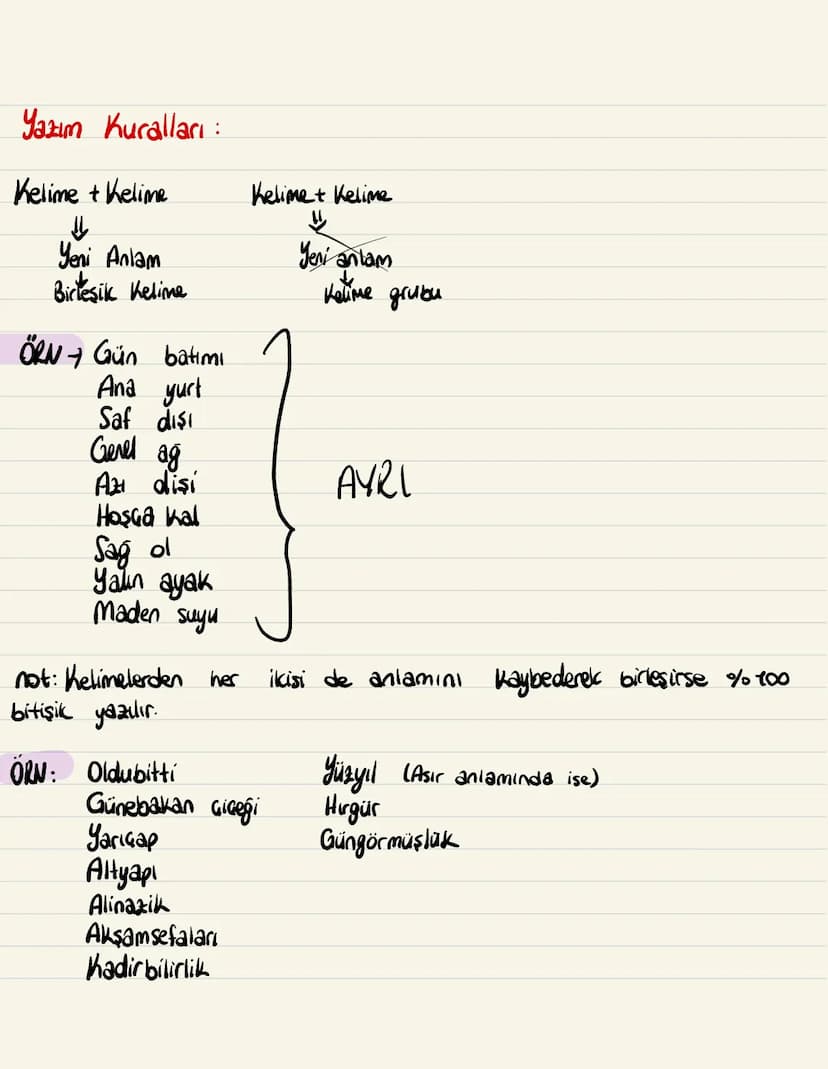 Yazım Kuralları :
Kelime + Kelime
⇓
Yeni Anlam
↓
Birleşik Kelime
Kelime + Kelime
⇓
Yeni anlam
↓
Kelime grubu
ÖRN → Gün batımı
Ana yurt
Saf dışı
Genel ağ
Azı dişi
Hoşça kal
Sağ ol
Yalın ayak
Maden suyu
AYRI
not: Kelimelerden her ikisi de anlamını kaybederek birleşirse %100
bitişik yazılır.
ÖRN: Oldubitti
Günebakan çiçeği
Yarıçap
Altyapı
Alinazik
Akşamsefaları
Kadirbilirlik
Yüzyıl (Asır anlamında ise)
Hırgür
Güngörmüşlük